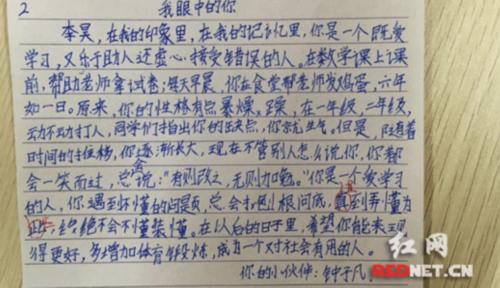 2
我眼中的你
李昊,在我的印象里,在我的记忆里,你是一个既爱
学习,又乐于助人还虚心接受错误的人。在数学课上课
前,帮助老师拿试卷;每天早晨,你在食堂帮老师发鸡蛋,六年
如一日。原来,你的性格有点暴燥。躁,在一年级,二年级,
动不动打人,同学们指出你的缺点,你就生气。但是,随着
时间的推移,你逐渐长大,现在不管别人怎么说你,你都
会一笑而过,总说:“有则改之,无则加勉。”你是一个爱学习
的人,你遇到不懂的问题,总会打刨根问底,直到弄懂为
止,绝不会不懂装懂。在以后的日子里,希望你能表现
得更好,多增加体育锻炼,成为一个对社会有用的人。
你的小伙伴:钟子凡
红网
REDNET.CN